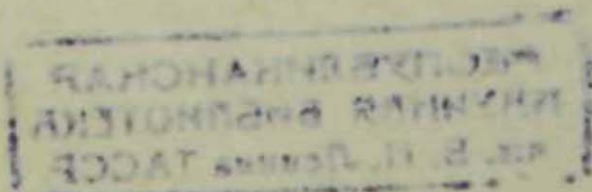 РЕСПУБЛИКАНСКАЯ
НАУЧНАЯ БИБЛИОТЕКА
им. В. И. Ленина ТАССР